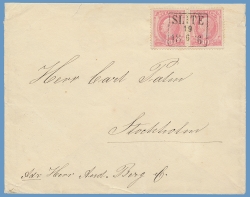 SLITE
19
Herr Carl Palm
Stockholm
Adr Herr Aud. Berg &